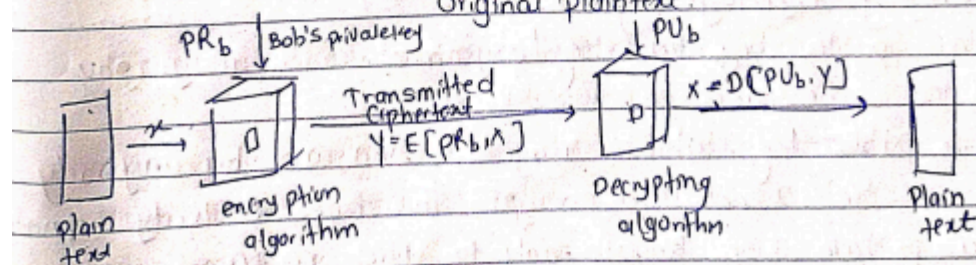 Original plaintext.
PRb Bob's privatekey PUb
Transmitted
Ciphertext
x Y=E[PRb,X] x=D[PUb,Y]
D D
Plain
text
encryption
algorithm
Decrypting
algorithm
Plain
text